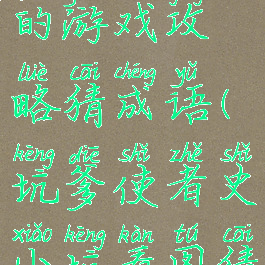 的游戏攻
lüè cāi chéng yǔ
略猜成语(
kēng diē shǐ zhě shǐ
坑爹使者史
xiǎo kēng kàn tú cāi
小坑看图猜